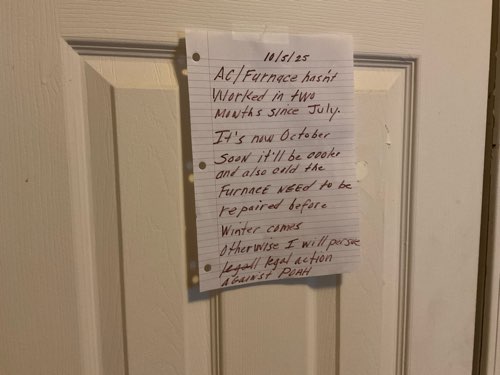 10/5/25
AC/Furnace hasn't
Worked in two
Months since July.
It's now October
Soon it'll be cooler
and also cold the
Furnace NEED to be
repaired before
Winter comes
Otherwise I will persue
legall legal action
against POAH